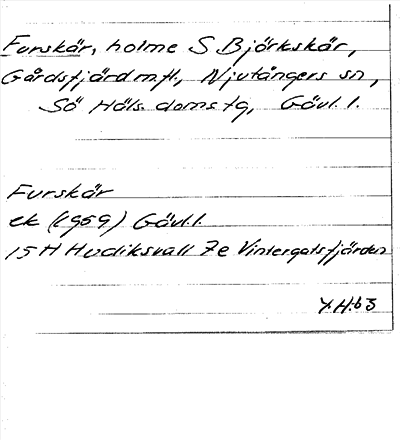 Furskär, holme S Björkskär,
Gårdsfjärd m.fl., Njutångers sn,
Sö Häls. doms tg, Gävl. l.
Furskär
ek (1959) Gävl. l.
15H Hudiksvall 7e Vintergatsfjärden
Y.H. 63